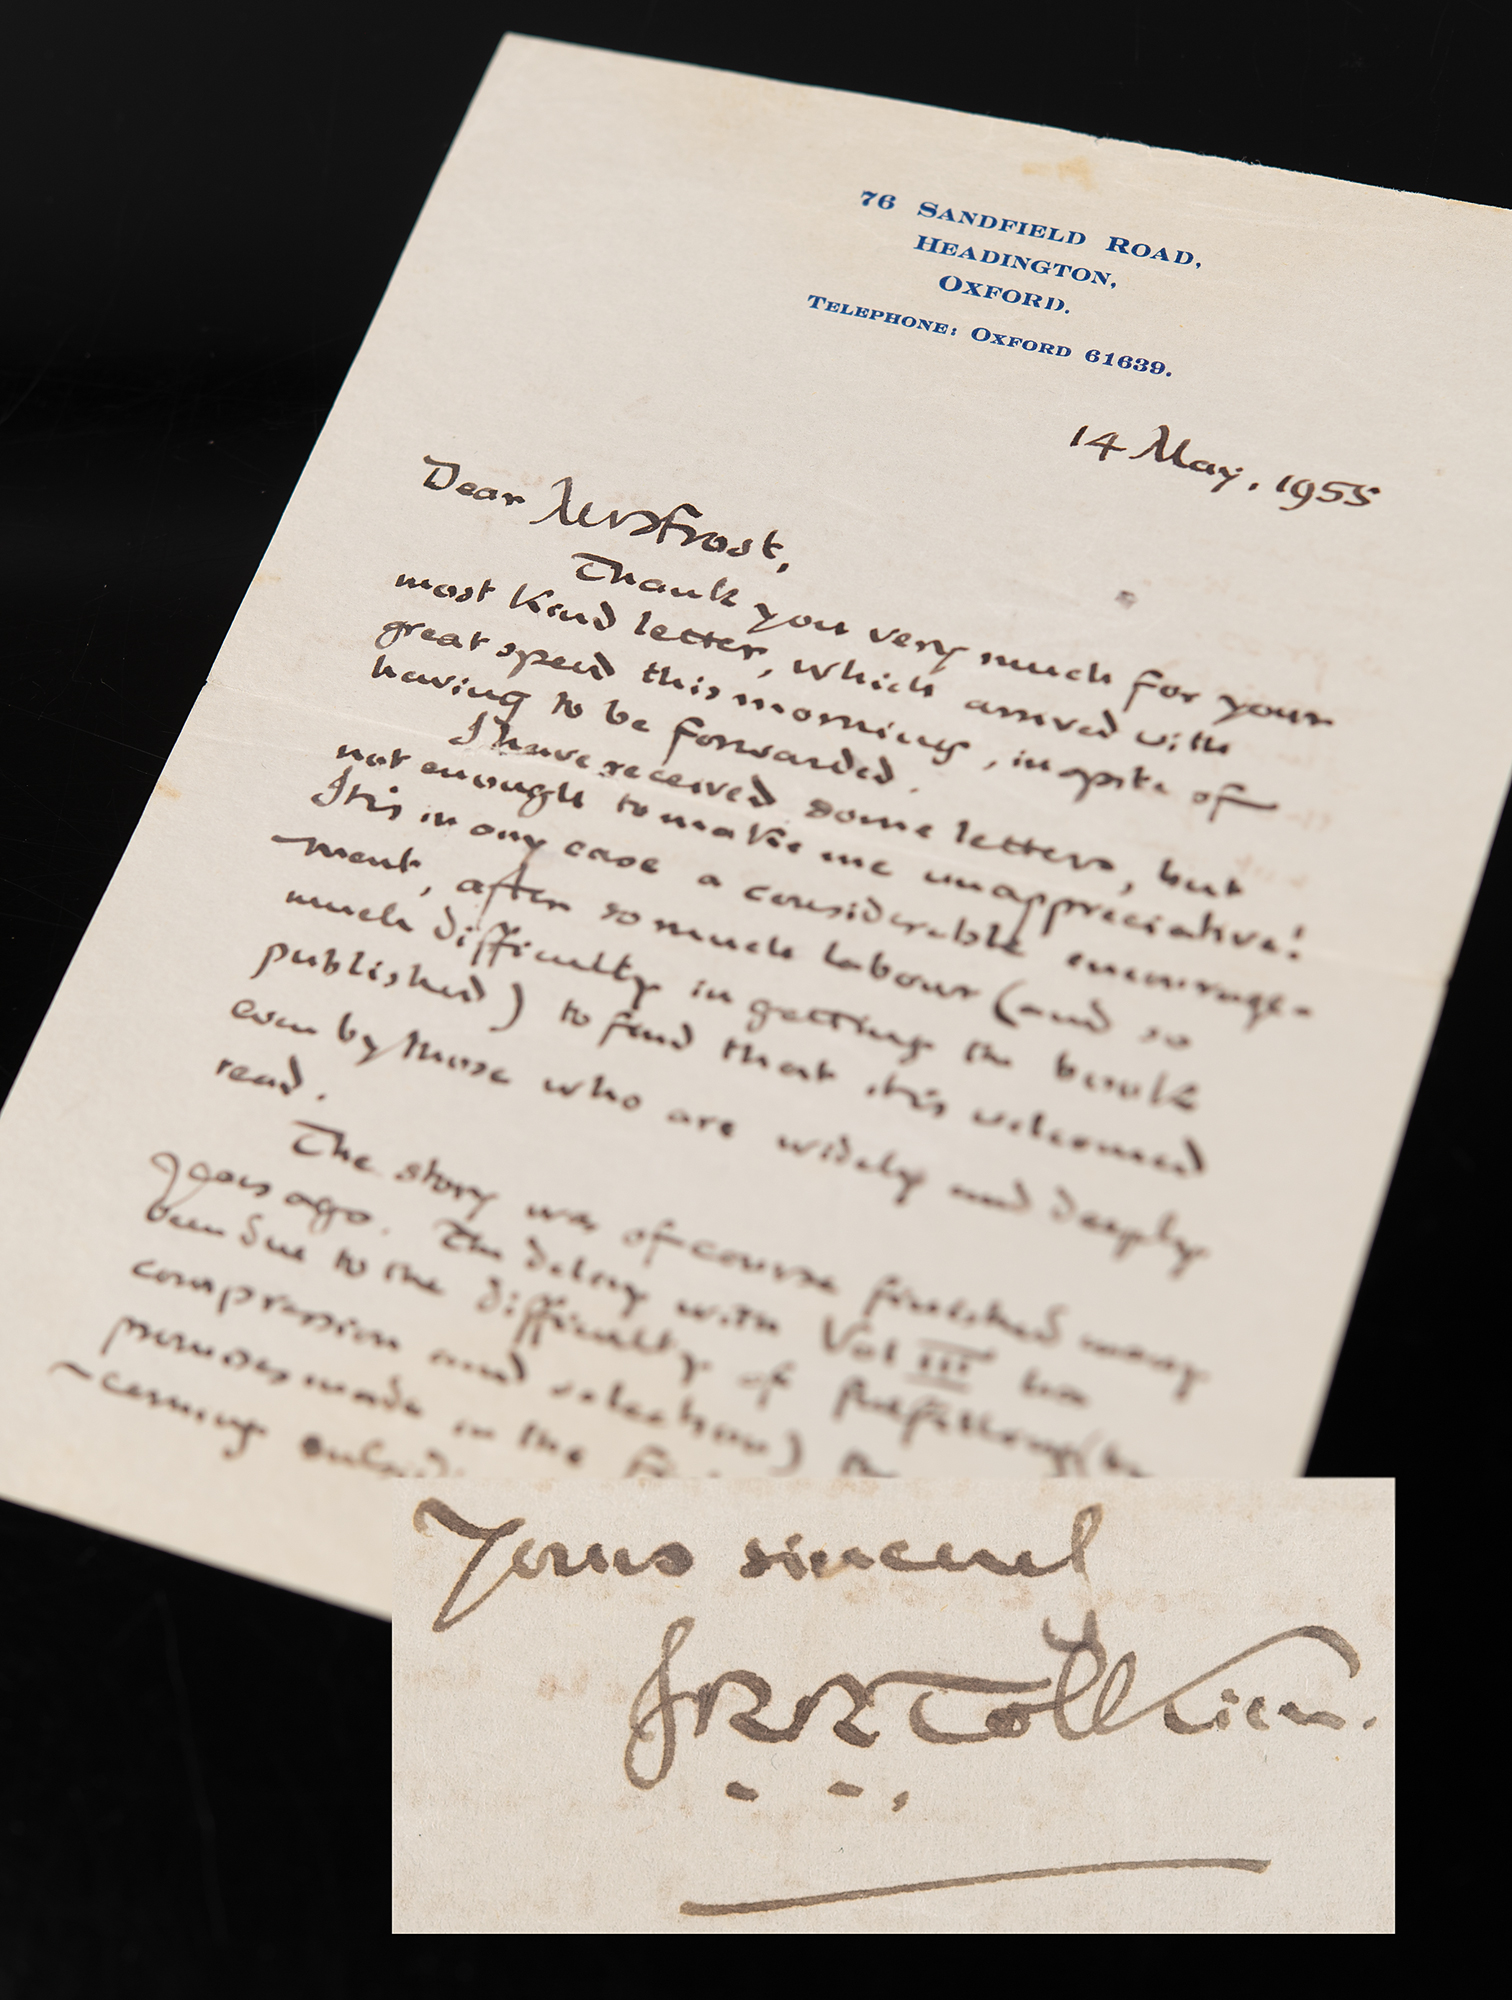 76 SANDFIELD ROAD,
HEADINGTON,
OXFORD.
TELEPHONE: OXFORD 61639.
14 May, 1955
Dear Mrs Frost,
Thank you very much for your
most kind letter, which arrived with
great speed this morning, in spite of
having to be forwarded.
I have received some letters, but
not enough to make me unappreciative!
It is in any case a considerable encourage-
ment, after so much labour (and so
much difficulty in getting the book
published) to find that it is welcomed
even by those who are widely and deeply
read.
The story was of course finished many
years ago. The delay with Vol III has
been due to the difficulty of fulfilling (by
compression and selection) the
promises made in the
-cerning
Yours sincerely
JRRTolkien.